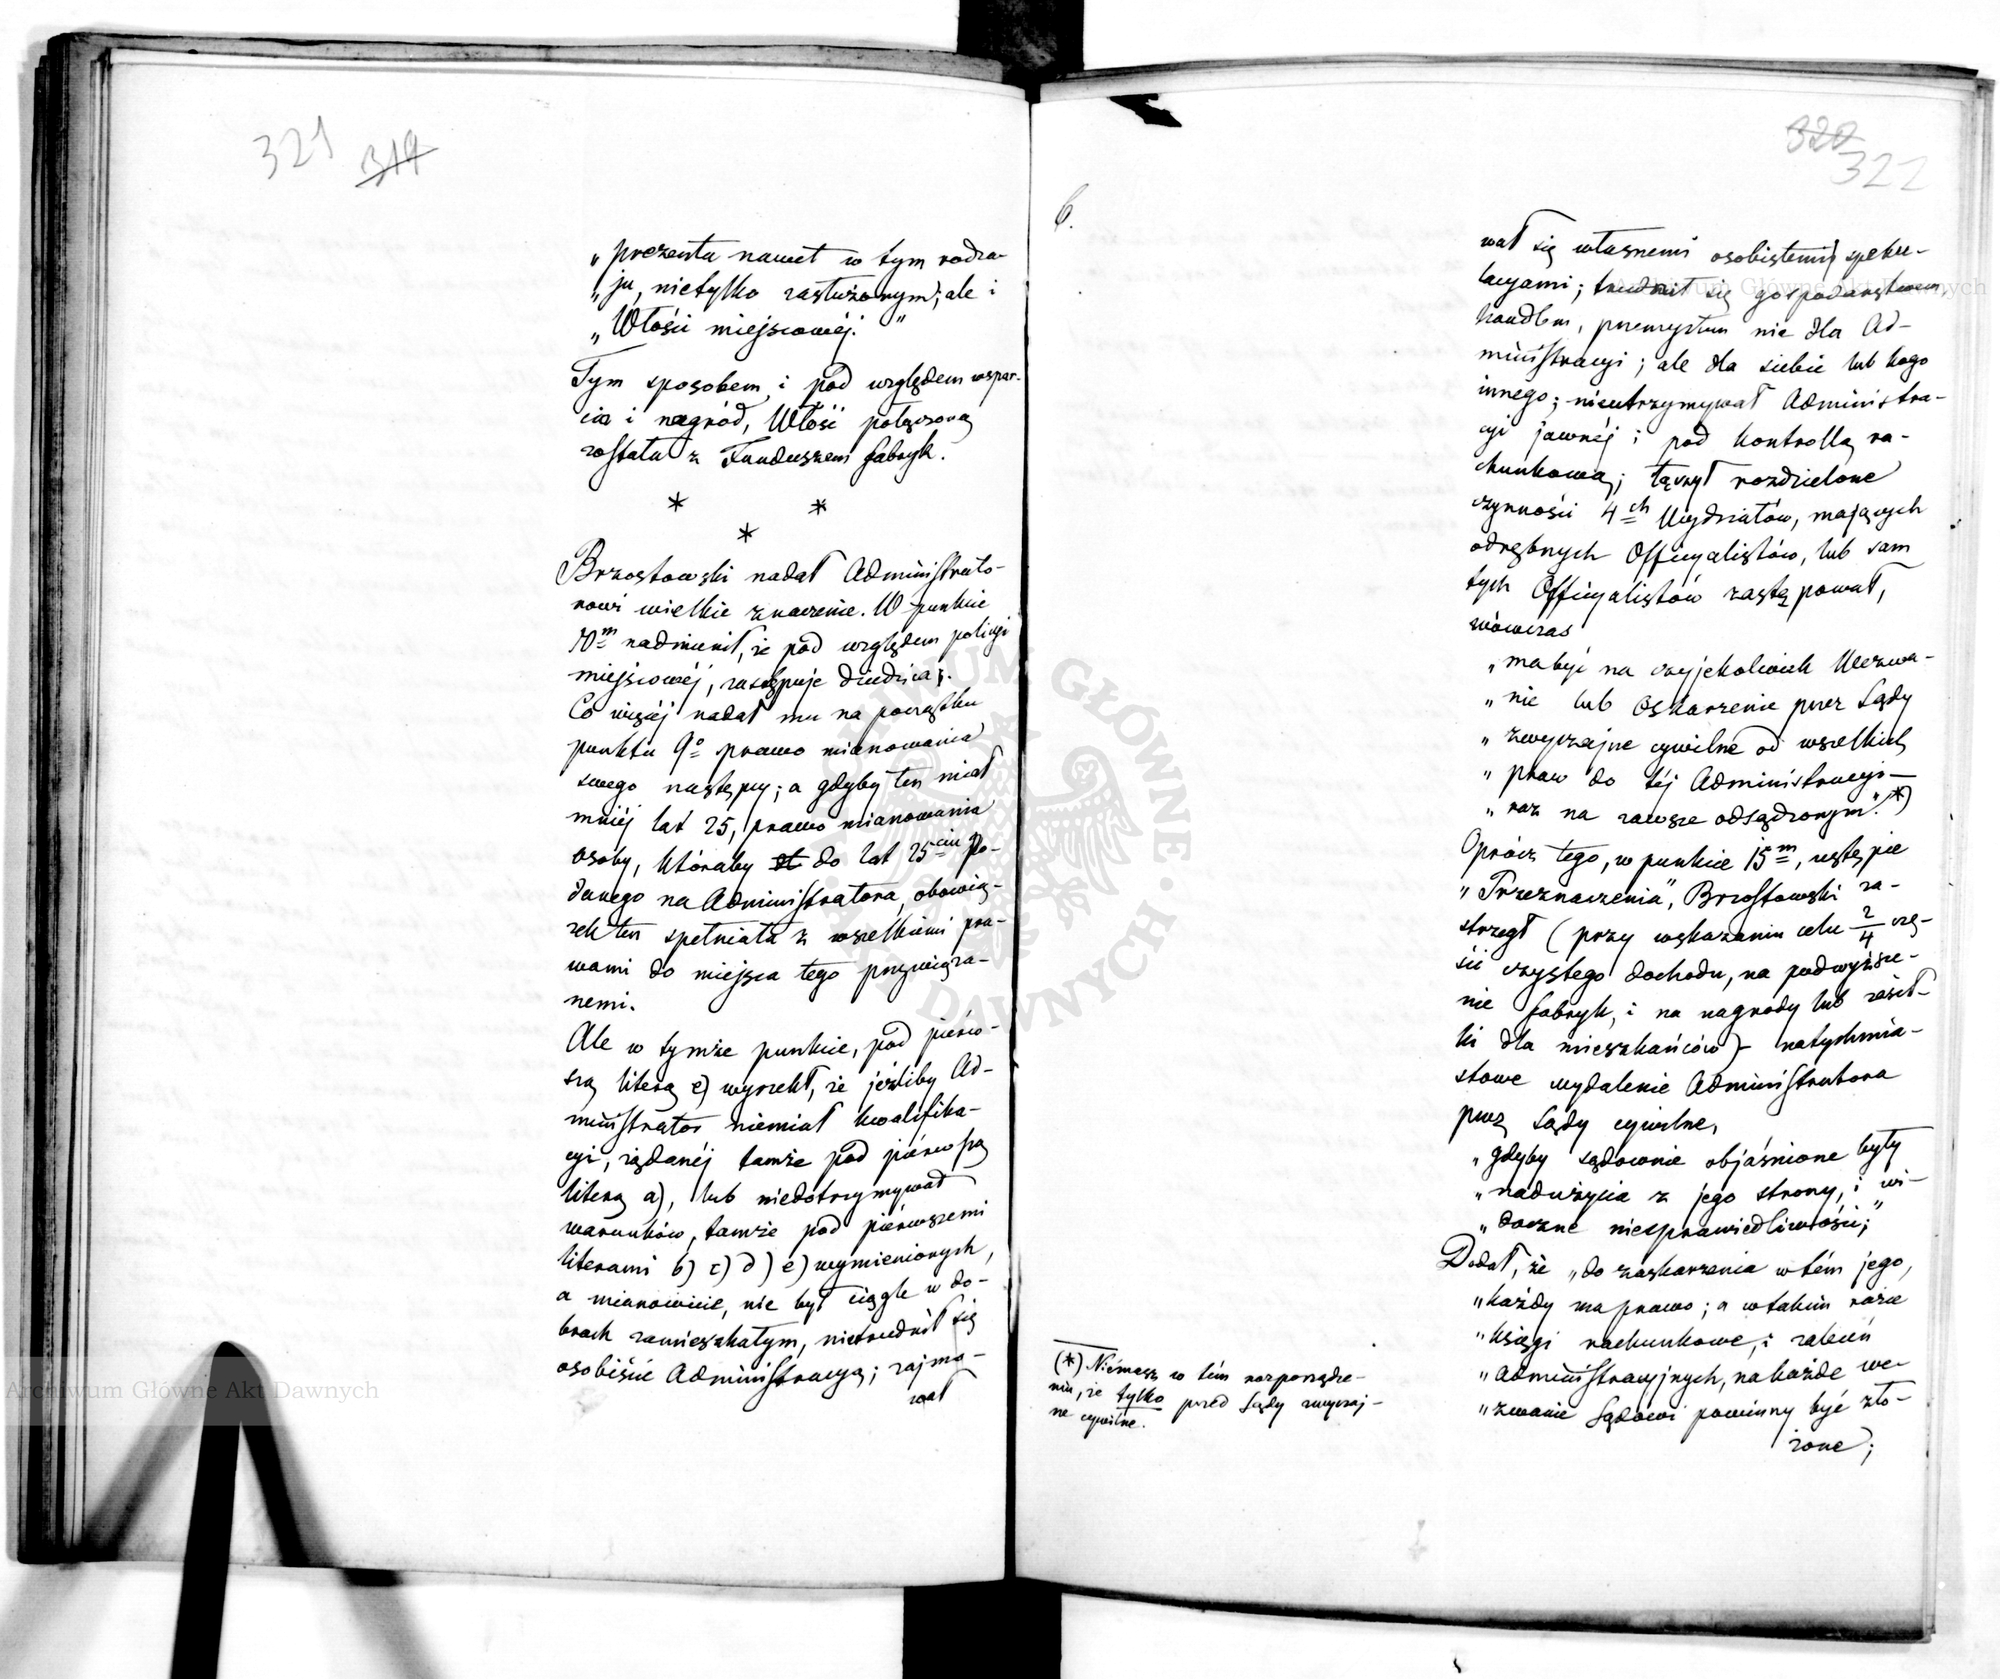 321 319
„prezenta nawet w tym rodza-
„ju, nietylko zasłużonym; ale i
„Włości miejscowéj.”
Tym sposobem, i pod względem wspar-
cia i nagród, Włość połączoną
została z Funduszem fabryk.
* *
*
Brzostowski nadał Administrato-
rowi wielkie znaczenie. W punkcie
10m nadmienił, że pod względem policyi
miejscowéj, zastępuje dziedzica.
Co więcéj nadał mu na początku
punktu 9o prawo mianowania
swego następcy; a gdyby ten miał
mniéj lat 25, prawo mianowania
osoby, któraby do lat 25ciu po-
danego na Administratora, obowią-
zek ten spełniała z wszelkiemi pra-
wami do miejsca tego przywiąza-
nemi.
Ale w tymże punkcie, pod pierw-
szą literą e) wyrzekł, że jeżliby Ad-
ministrator niemiał kwalifika-
cyi, żądanéj tamże pod piérwszą
literą a), lub niedotrzymywał
warunków, tamże pod piérwszemi
literami b) c) d) e) wymienionych,
a mianowicie, nie był ciągle w do-
brach zamieszkałym, nietrudnił się
osobiście Administracyą; zajmo-
wał
320
322
6.
wał się własnemi osobistemi speku-
lacyami; trudnił się gospodarstwem,
handlem, przemysłem nie dla Ad-
ministracyi; ale dla siebie lub kogo
innego; nieutrzymywał Administra-
cyi jawnéj i pod kontrollą ra-
chunkową; łączył rozdzielone
czynności 4ch Wydziałów, mających
odrębnych Officyalistów, lub sam
tych Officyalistów zastępował,
wówczas
„ma być na czyjekolwiek Wezwa-
„nie lub Oskarzenie przez Sądy
„zwyczajne cywilne od wszelkich
„praw do téj Administracyi—
„raz na zawsze odsądzonym”.*)
Oprócz tego, w punkcie 15m, ustępie
„Przeznaczenia”, Brzostowski za-
strzegł (przy wskazaniu celu 2/4 czę-
ści czystego dochodu, na podwyższe-
nie fabryk, i na nagrody lub zasił-
ki dla mieszkańców) - natychmia-
stowe wydalenie Administratora
przez Sądy cywilne,
„gdyby sądownie objaśnione były
„nadużycia z jego strony, i wi-
„doczne niesprawiedliwości;”
Dodał, że „do zaskarzenia w tém jego,
„każdy ma prawo; a w takim razie
„księgi rachunkowe, i zaleceń
„Administracyjnych, na każde we-
„zwanie Sądowi powinny być zło-
żone;
(*) Niémasz w tém rozporządze-
niu, że tylko przed Sądy zwyczaj-
ne cywilne.
Archiwum Główne Akt Dawnych
Archiwum Główne Akt Dawnych
ARCHIWUM GŁÓWNE AKT DAWNYCH